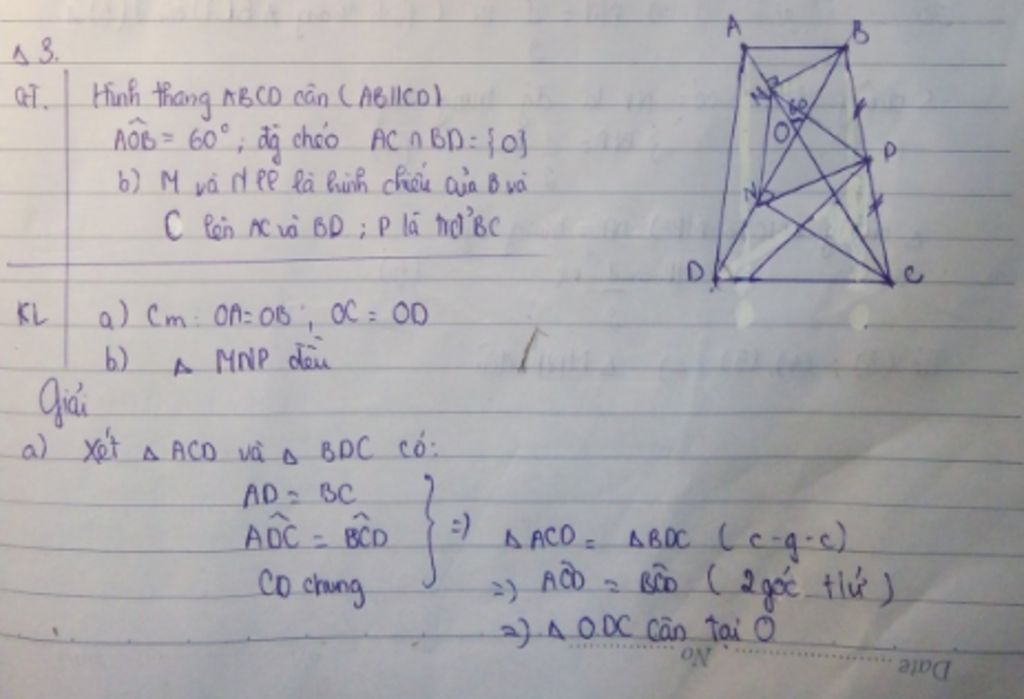 Δ 3.
GT. Hình thang ABCD cân (AB//CD)
AÔB = 60°; đg chéo AC ∩ BD = {O}
b) M và N là hình chiếu của B và
C lên AC và BD ; P là trđ' BC
KL a) Cm: OA = OB ; OC = OD
b) Δ MNP đều
Giải
a) Xét Δ ACD và Δ BDC có:
AD = BC
AD̂C = BĈD
CD chung
=) Δ ACD = Δ BDC (c-g-c)
=) AĈD = BĈD (2 góc tứ)
=) Δ ODC cân tại O
A
B
M
60
O
P
N
D
C
No
Date